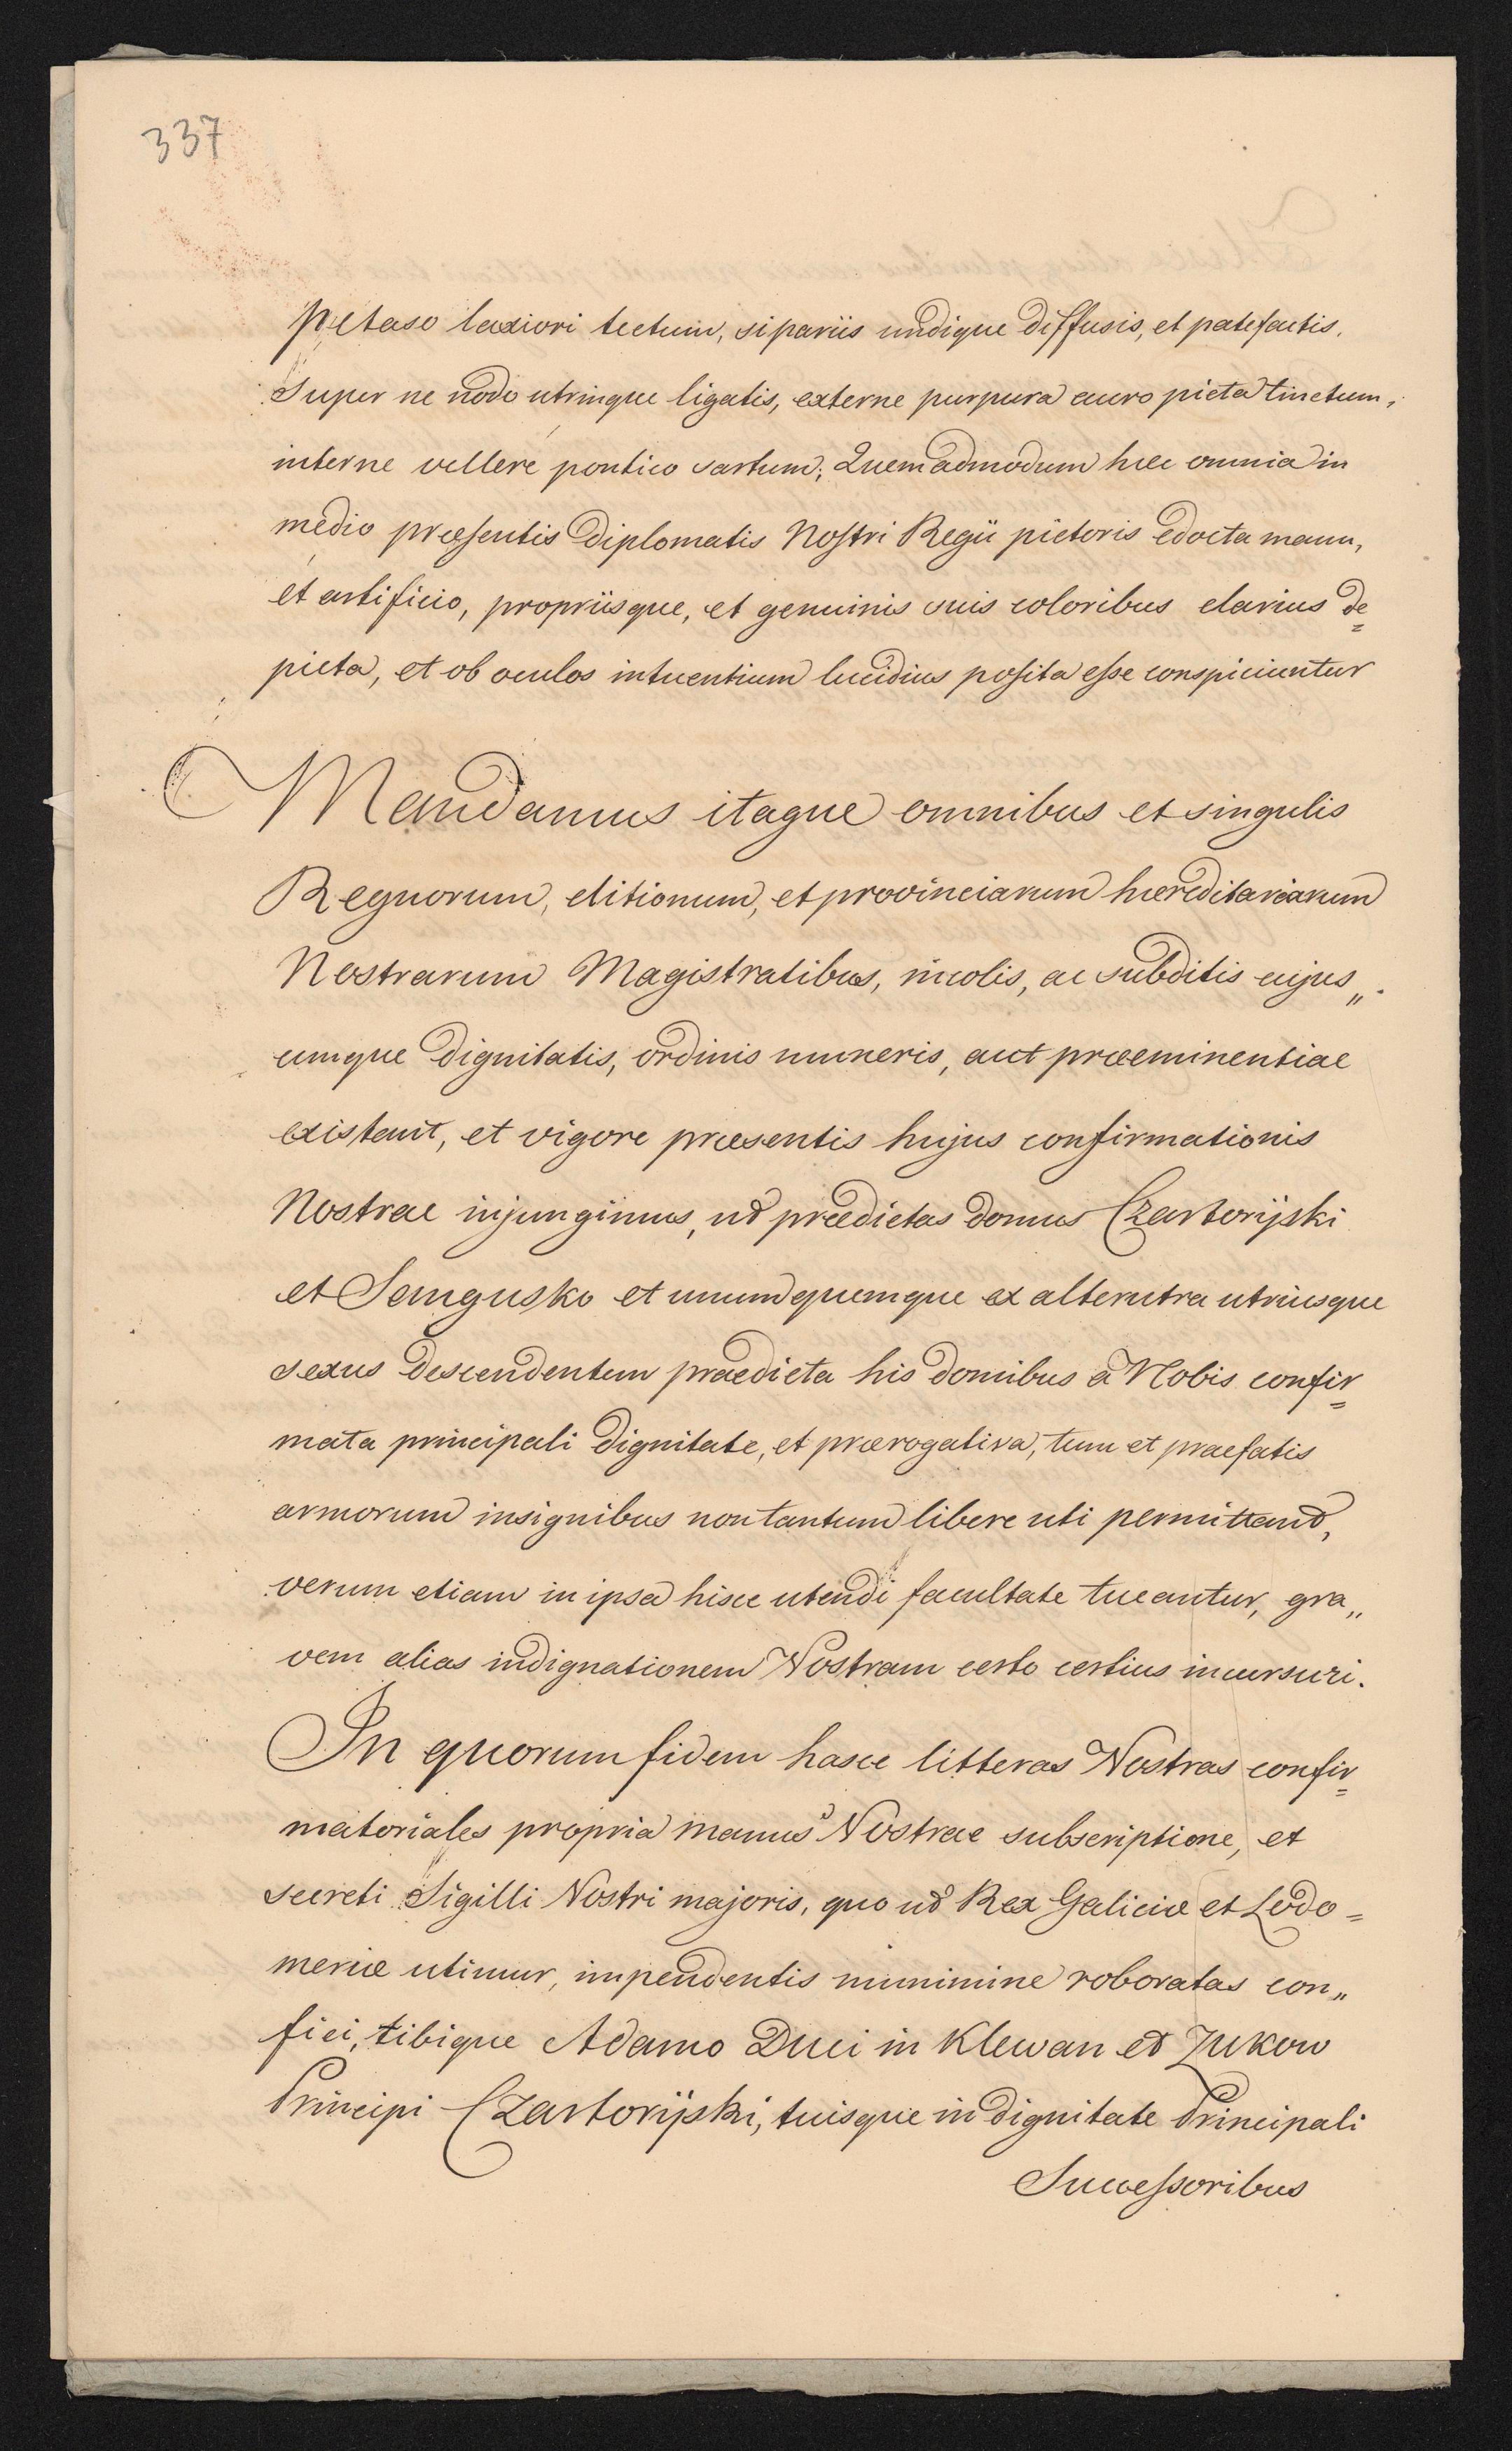 337
petaso laxiori tectum, sipariis undique diffusis, et patefactis.
Super ne nodo utrinque ligatis, externe purpura auro picta tinctum,
interne vellere pontico sartum; Quemadmodum hæc omnia in
medio præsentis Diplomatis Nostri Regii pictoris edocta manu,
et artificio, propriisque, et genuinis suis coloribus clarius de=
picta, et ob oculos intuentium lucidius posita esse conspiciuntur
Mandamus itaque omnibus et singulis
Regnorum, ditionum, et provinciarum hæreditariarum
Nostrarum Magistratibus, incolis, ac subditis cujus„
cumque dignitatis, ordinis muneris, aut præeminentiae
existant, et vigore præsentis hujus confirmationis
Nostrae injungimus, ut prædictas domus Czartorijski
et Sangusko et unumquemque ex alterutra utriusque
sexus descendentem praedicta his domibus a Nobis confir=
mata principali dignitate, et prærogativa, tum et praefatis
armorum insignibus non tantum libere uti permittant,
verum etiam in ipsa hisce utendi facultate tueantur, gra„
vem alias indignationem Nostram certo certius incursuri.
In quorum fidem hasce litteras Nostras confir=
matoriales propria manus Nostrae subscriptione, et
secreti Sigilli Nostri majoris, quo ut Rex Galiciæ et Lodo=
meriæ utimur, impendentis munimine roboratas con„
fici, tibique Adamo Duci in Klewan et Zukow
Principi Czartorijski, tuisque in dignitate Principali
Successoribus